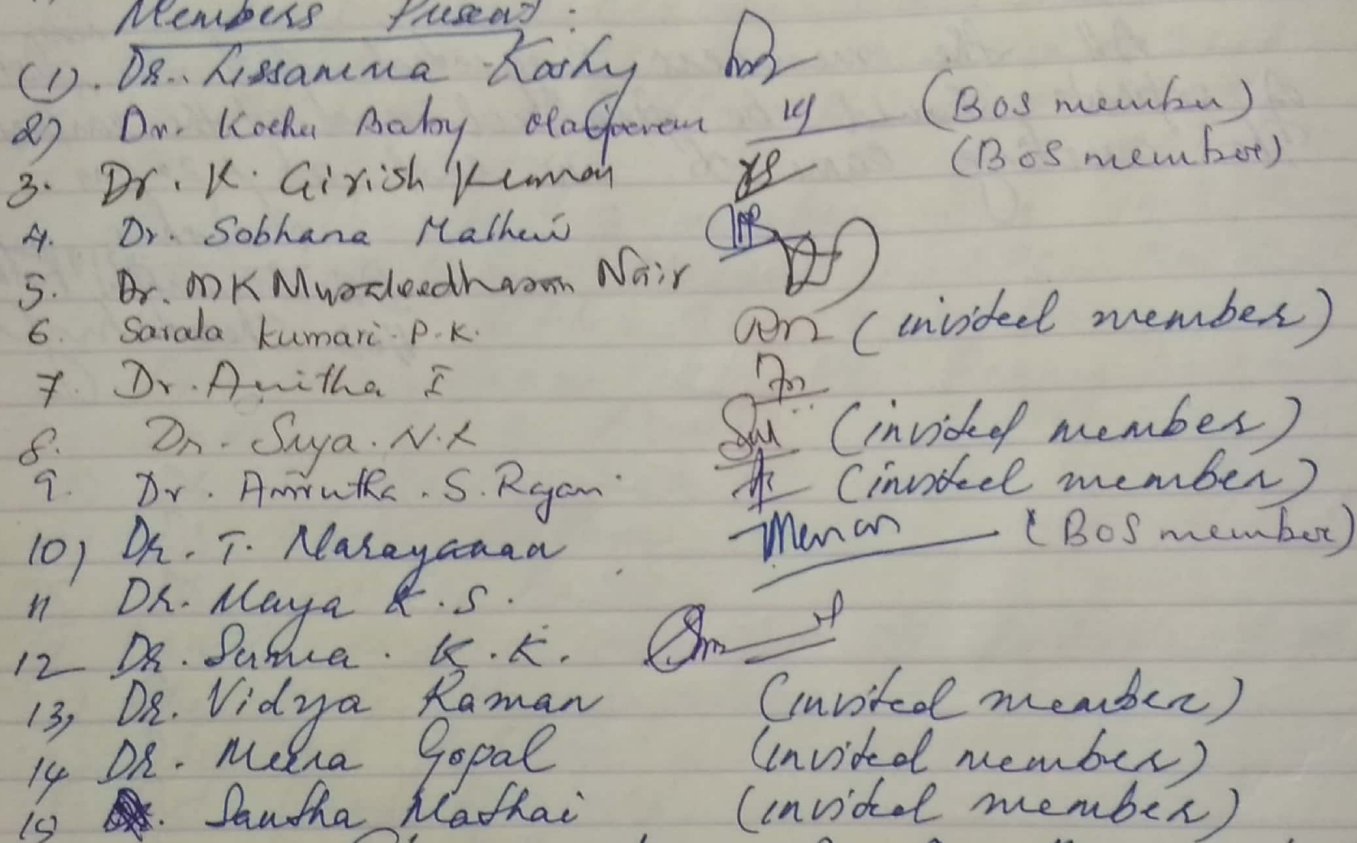 Members Present:
(1). Dr. Lissamma Koshy
2) Dr. Kochu Baby (BOS member)
3. Dr. K. Girish Kumar (BOS member)
4. Dr. Sobhana Mathew
5. Dr. M K Muraleedharan Nair
6. Sarala kumari. P. K. (invited member)
7. Dr. Anitha I
8. Dr. Suja. N. R (invited member)
9. Dr. Amrutha. S. Rajan (invited member)
10) Dr. T. Narayanan Menon (BOS member)
11 Dr. Maya K. S.
12 Dr. Suma. K. K.
13, Dr. Vidya Raman (invited member)
14 Dr. Meera Gopal (invited member)
15 Santha Mathai (invited member)